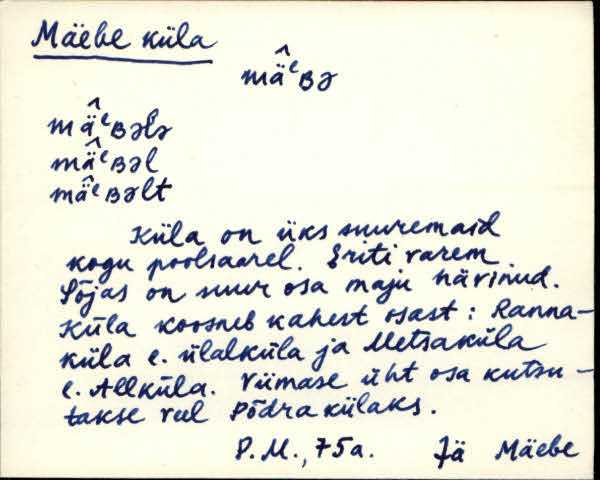 Mäebe küla
mä̂ᵉʙə
mä̂ᵉʙələ
mä̂ᵉʙəl
mä̂ᵉʙəlt
Küla on üks suuremaid
kogu poolsaarel. Eriti varem.
Sõjas on suur osa maju hävinud.
Küla koosneb kahest osast: Ranna-
küla e. ülalküla ja Metsaküla
e. Allküla. Viimase üht osa kutsu-
takse veel Põdra külaks.
P.M., 75a. Jä Mäebe